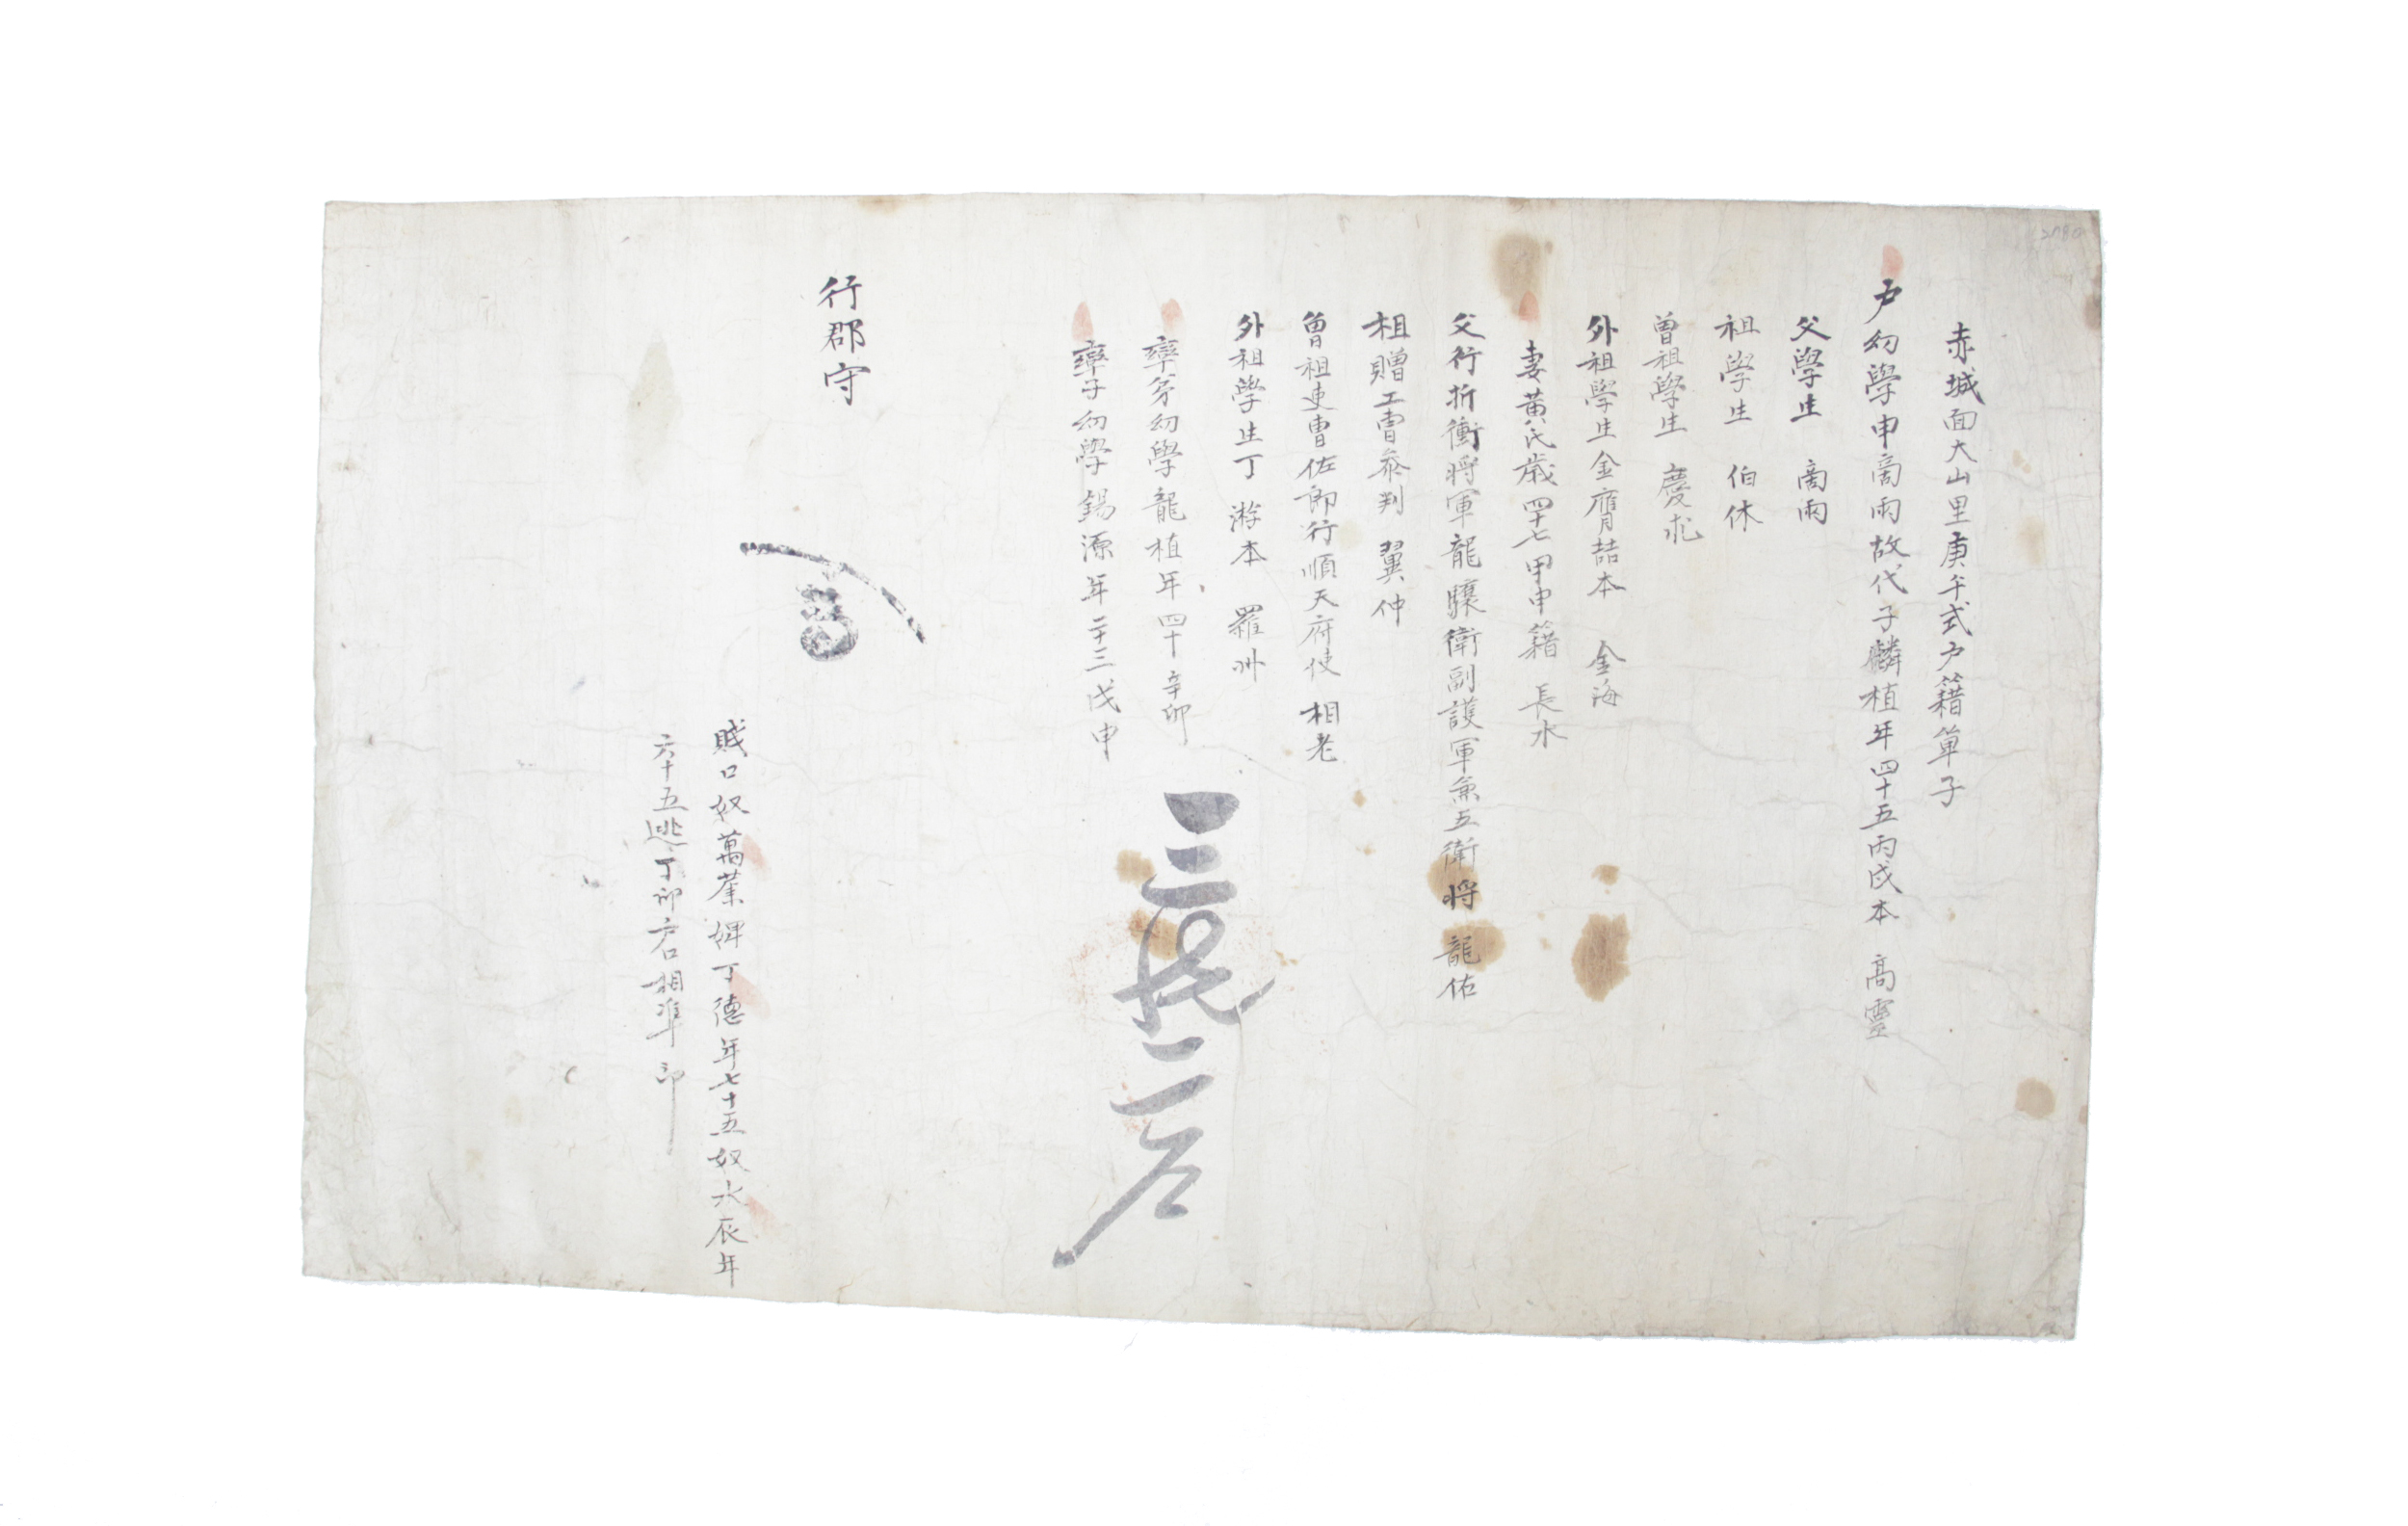 赤城面大山里庚午式戶籍單子
戶幼學申啇雨故代子麟植年四十五丙戌本 高靈
父學生 啇雨
祖學生 伯休
曾祖學生 慶
外祖學生金膺喆本 金海
妻黃氏歲四十七甲申籍 長水
父行折衝將軍龍驤衛副護軍兼五衛將 龍佑
祖贈工曹叅判 翼仲
曾祖吏曹佐郎行順天府使 相老
外祖學生丁游本 羅州
率弟幼學龍植年四十辛卯
率子幼學錫源年二十三戊申
三
行郡守
賤口奴萬業婢丁德年七十五奴水辰年
六十五逃丁卯戶口相準印
2780